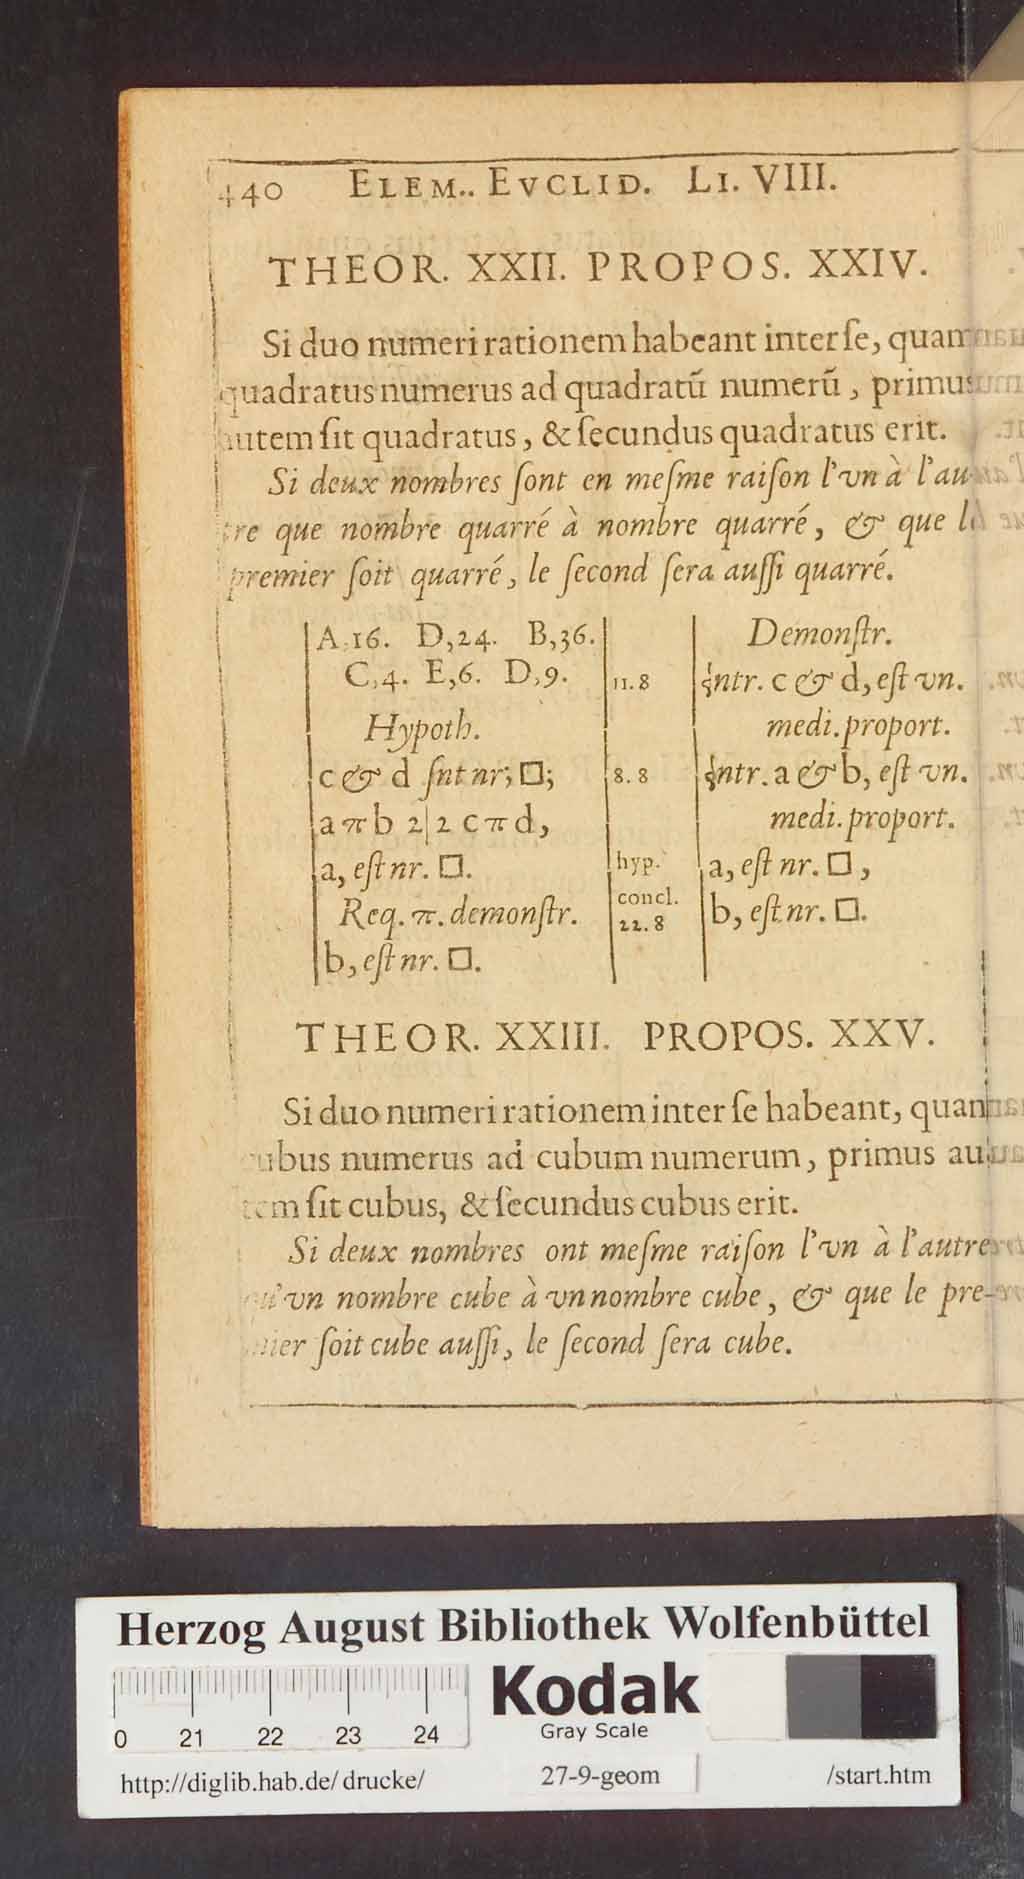 440 ELEM.. EVCLID. LI. VIII.
THEOR. XXII. PROPOS. XXIV.
Si duo numeri rationem habeant inter ſe, quam
quadratus numerus ad quadratū numerū, primus
autem ſit quadratus, & ſecundus quadratus erit.
Si deux nombres ſont en meſme raiſon l'vn à l'au-
tre que nombre quarré à nombre quarré, & que le
premier ſoit quarré, le ſecond ſera auſſi quarré.
A,16. D,24. B,36.
C,4. E,6. D,9.
Hypoth.
c & d ſnt nr; □;
a π b 2|2 c π d,
a, eſt nr. □.
Req. π. demonſtr.
b, eſt nr. □.
Demonſtr.
11. 8 Intr. c & d, eſt vn.
medi. proport.
8. 8 Intr. a & b, eſt vn.
medi. proport.
hyp. a, eſt nr. □,
concl.
22. 8 b, eſt nr. □.
THEOR. XXIII. PROPOS. XXV.
Si duo numeri rationem inter ſe habeant, quam
cubus numerus ad cubum numerum, primus au-
tem ſit cubus, & ſecundus cubus erit.
Si deux nombres ont meſme raiſon l'vn à l'autre
qu'vn nombre cube à vn nombre cube, & que le pre-
mier ſoit cube auſſi, le ſecond ſera cube.
Herzog August Bibliothek Wolfenbüttel
0 21 22 23 24
Kodak
Gray Scale
http://diglib.hab.de/drucke/ 27-9-geom /start.htm